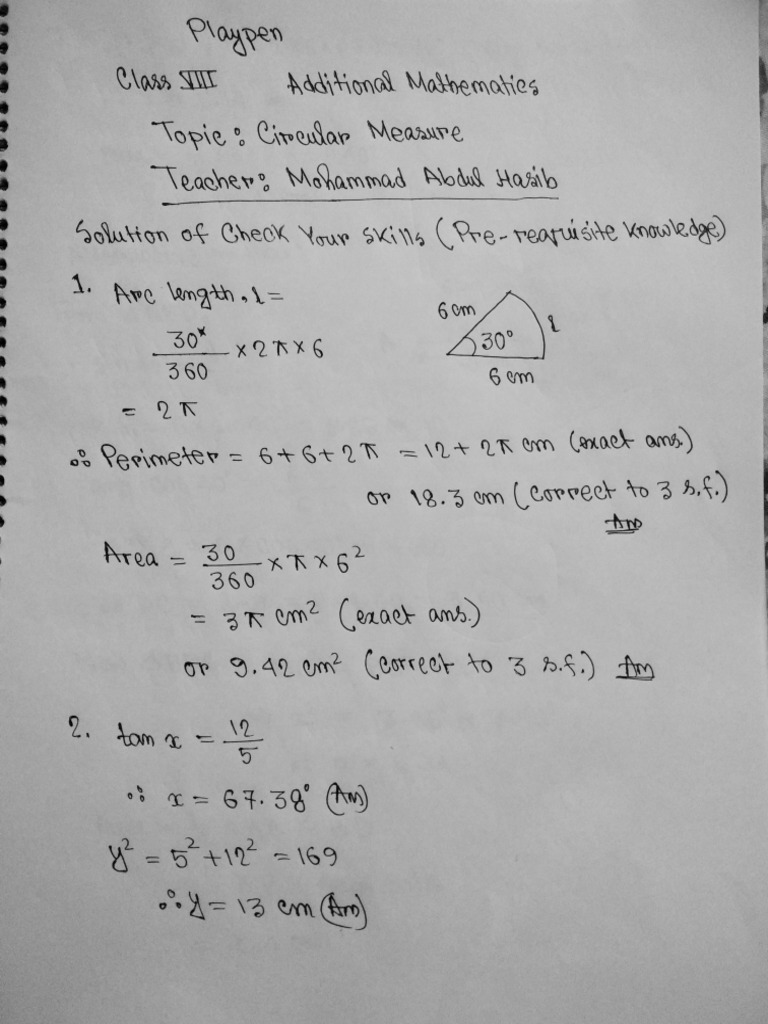 Playpen
Class VIII Additional Mathematics
Topic: Circular Measure
Teacher: Mohammad Abdul Hasib
Solution of Check Your Skills (Pre-requisite Knowledge)
1. Arc length, l =
30°/360 × 2π × 6
= 2π
6 cm
30°
l
6 cm
∴ Perimeter = 6 + 6 + 2π = 12 + 2π cm (exact ans.)
or 18.3 cm (correct to 3 s.f.)
Ans
Area = 30/360 × π × 6²
= 3π cm² (exact ans.)
or 9.42 cm² (correct to 3 s.f.) Ans
2. tan x = 12/5
∴ x = 67.38° (Ans)
y² = 5² + 12² = 169
∴ y = 13 cm (Ans)